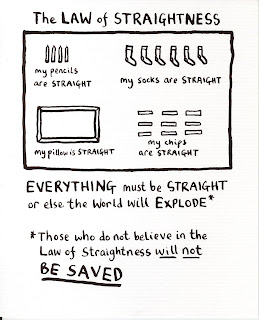 The LAW of STRAIGHTNESS
my pencils
are STRAIGHT
my socks are STRAIGHT
my pillow is STRAIGHT
my chips
are STRAIGHT
EVERYTHING must be STRAIGHT
or else the World will EXPLODE*
*Those who do not believe in the
Law of Straightness will not
BE SAVED